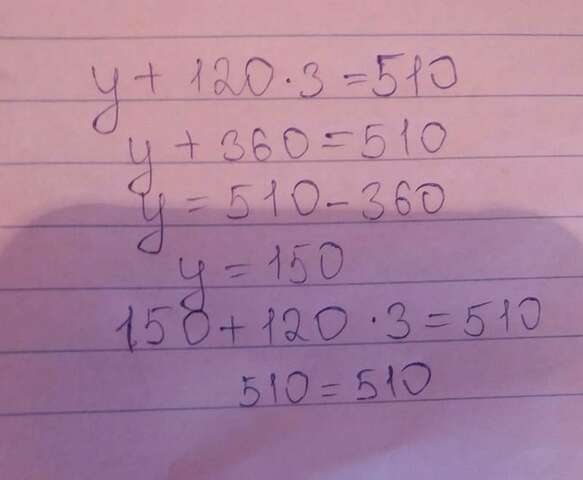 y + 120 · 3 = 510
y + 360 = 510
y = 510 - 360
y = 150
150 + 120 · 3 = 510
510 = 510